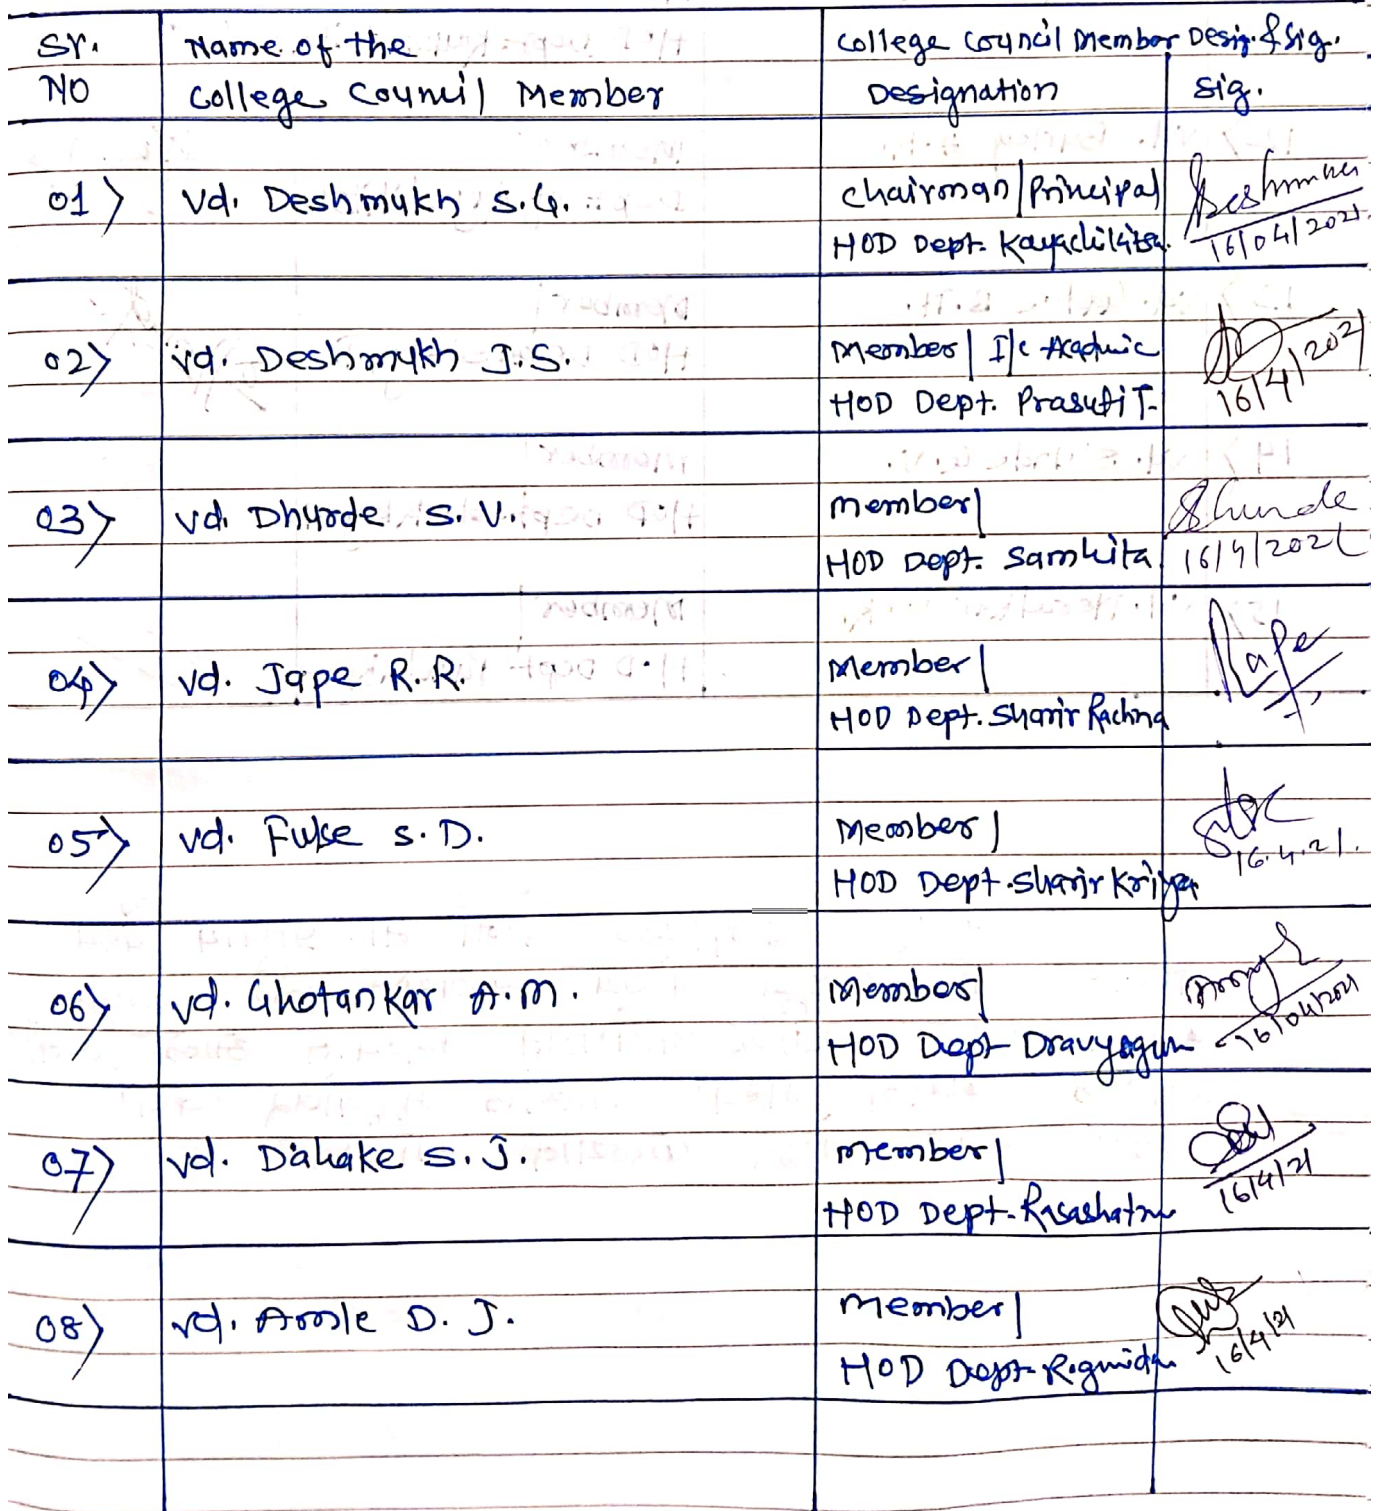 Sr. Name of the College Council Member Desig. & Sig.
NO College Council Member Designation Sig.
01) Vd. Deshmukh S.G. Chairman/Principal Deshmukh
HOD Dept. Kayachikitsa. 16/04/2021.
02) Vd. Deshmukh J.S. Member/ I/c Academic
HOD Dept. Prasuti T. 16/4/2021
03) Vd. Dhurde S.V. Member/ Dhurde
HOD Dept. Samhita 16/4/2021
04) Vd. Jape R.R. Member/ Jape
HOD Dept. Sharir Rachna
05) Vd. Fuke S.D. Member/
HOD Dept. Sharir Kriya 16.4.21.
06) Vd. Ghotankar A.M. Member/
HOD Dept Dravyagun 16/04/2021
07) Vd. Dahake S.J. Member/
HOD Dept. Rasashatra 16/4/21
08) Vd. Amle D.J. Member/
HOD Dept. 16/4/21